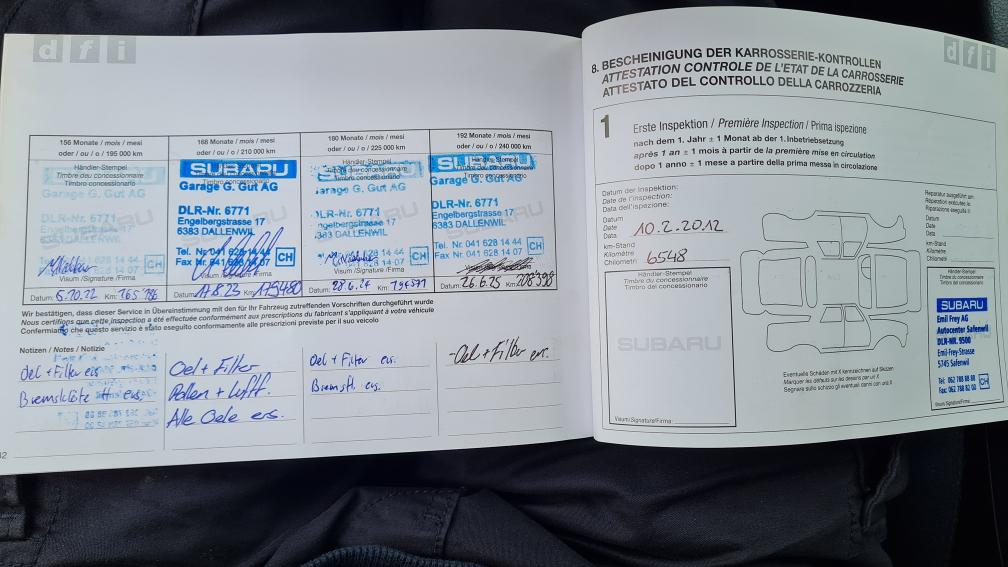 dfi
156 Monate / mois / mesi
oder / ou / o / 195 000 km
Händler-Stempel
Timbre du concessionnaire
Timbro concessionario
Garage G. Gut AG
DLR-Nr. 6771
Engelbergstrasse 17
6383 DALLENWIL
CH
Visum /Signature /Firma
Datum: 6.10.22 Km: 165'786
168 Monate / mois / mesi
oder / ou / o / 210 000 km
SUBARU
Garage G. Gut AG
DLR-Nr. 6771
Engelbergstrasse 17
6383 DALLENWIL
Tel. Nr. 041 628 14 44
Fax Nr. 041 628 14 07
CH
Visum /Signature /Firma
Datum: 17.8.23 Km: 179480
180 Monate / mois / mesi
oder / ou / o / 225 000 km
Händler-Stempel
Timbre du concessionnaire
Timbro concessionario
Garage G. Gut AG
DLR-Nr. 6771
Engelbergstrasse 17
6383 DALLENWIL
CH
Visum /Signature /Firma
Datum: 28.6.24 Km: 194571
192 Monate / mois / mesi
oder / ou / o / 240 000 km
Händler-Stempel
Timbro concessionario
Garage G. Gut AG
DLR-Nr. 6771
Engelbergstrasse 17
6383 DALLENWIL
Tel. Nr. 041 628 14 44
Fax Nr. 041 628 14 07
CH
Visum /Signature /Firma
Datum: 26.6.25 Km: 208'398
Wir bestätigen, dass dieser Service in Übereinstimmung mit den für Ihr Fahrzeug zutreffenden Vorschriften durchgeführt wurde
Nous certifions que cette inspection a été effectuée conformément aux prescriptions du fabricant s'appliquant à votre véhicule
Confermiamo che questo servizio è stato eseguito conformamente alle prescrizioni previste per il suo veicolo
Notizen / Notes / Notizie
Oel + Filter ers.
Oel + Filter
Pollen + Luftf.
Alle Oele ers.
Oel + Filter ers.
Bremsfl. ers.
- Oel + Filter ers.
dfi
8. BESCHEINIGUNG DER KARROSSERIE-KONTROLLEN
ATTESTATION CONTROLE DE L'ETAT DE LA CARROSSERIE
ATTESTATO DEL CONTROLLO DELLA CARROZZERIA
1
Erste Inspektion / Première Inspection / Prima ispezione
nach dem 1. Jahr ± 1 Monat ab der 1. Inbetriebsetzung
après 1 an ± 1 mois à partir de la première mise en circulation
dopo 1 anno ± 1 mese a partire della prima messa in circolazione
Datum der Inspektion:
Date de l'inspection:
Data dell'ispezione:
Datum
Date
Data
10.2.2012
km-Stand
Kilomètre
Chilometri
6548
Händler-Stempel
Timbre du concessionnaire
Timbro del concessionario
SUBARU
Visum/Signature/Firma
Eventuelle Schäden mit X kennzeichnen auf Skizzen
Marquer les défauts sur les dessins par un X
Segnare sullo schizzo gli eventuali danni con una X
Reparatur ausgeführt am:
Réparation exécutée le:
Riparazione eseguita il:
Datum
Date
Data
km-Stand
Kilomètre
Chilometri
Händler-Stempel
Timbre du concessionnaire
SUBARU
Emil Frey AG
Autocenter Safenwil
DLR-NR. 9500
Emil-Frey-Strasse
5745 Safenwil
Tel: 062 788 88 88
Fax: 062 788 82 00
CH
Visum/Signature/Firma